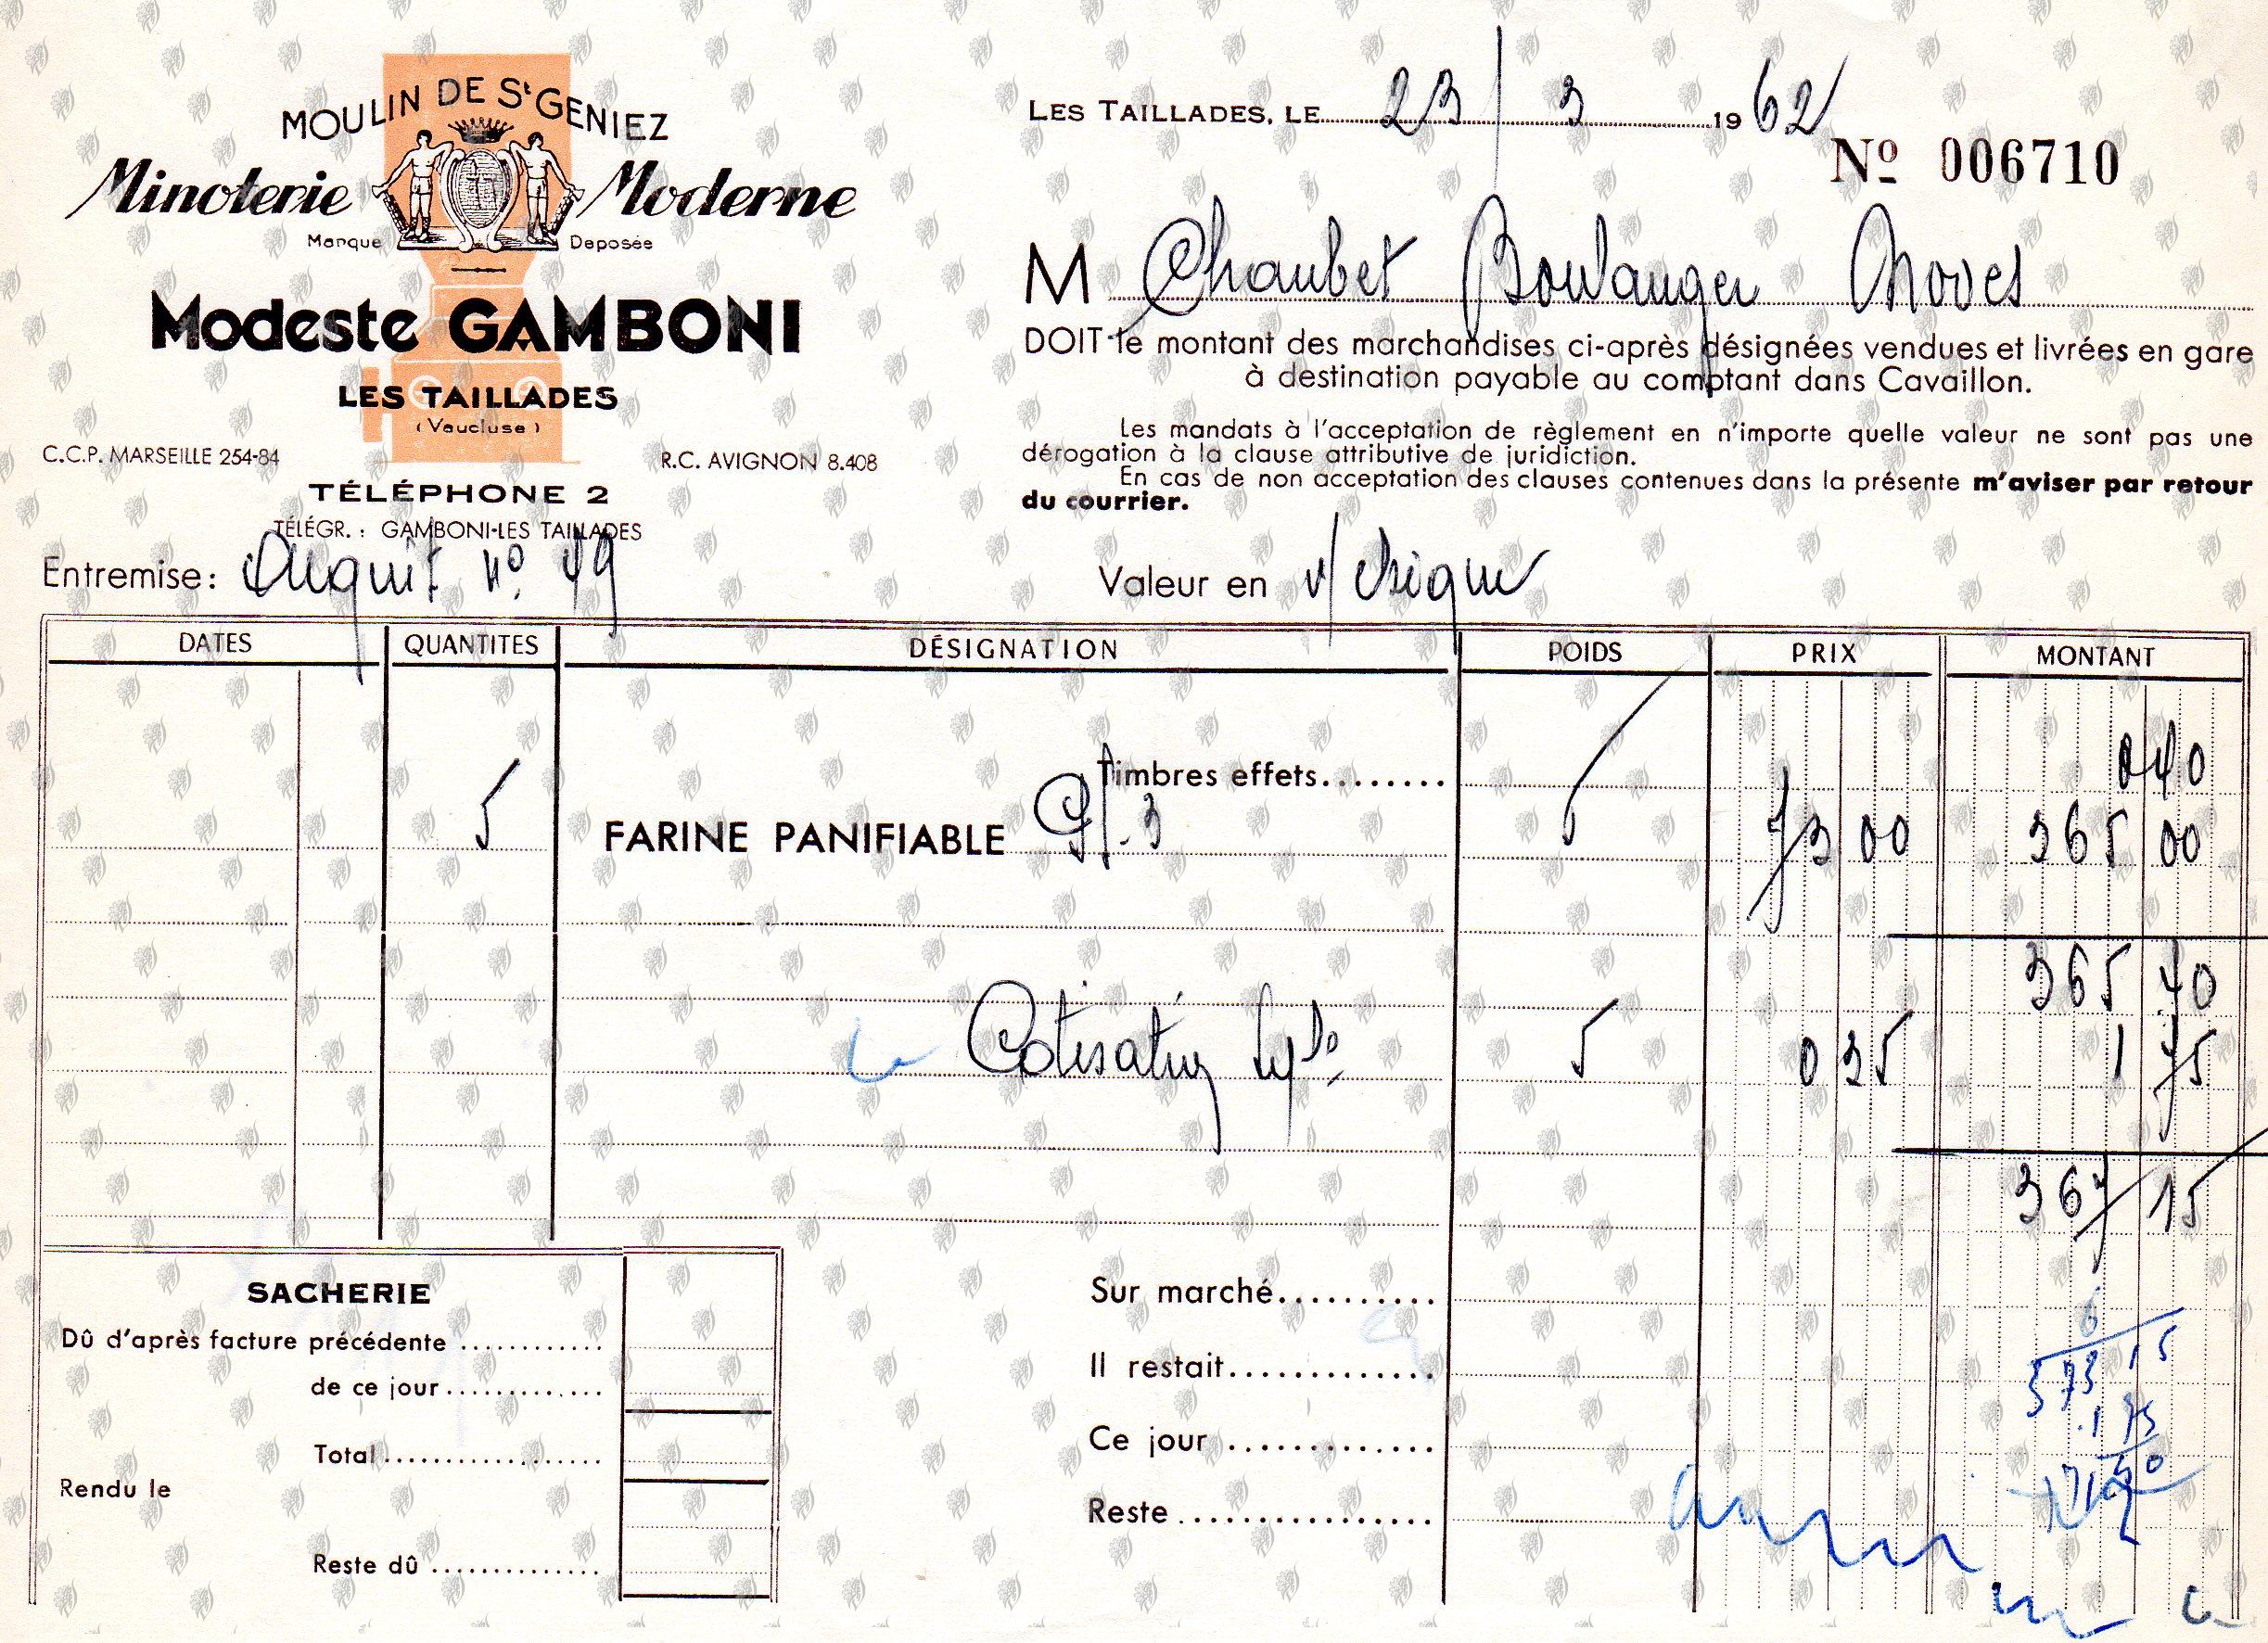 MOULIN DE St GENIEZ
Minoterie Moderne
Marque Deposée
Modeste GAMBONI
LES TAILLADES
(Vaucluse)
C.C.P. MARSEILLE 254-84
R.C. AVIGNON 8.408
TÉLÉPHONE 2
TÉLÉGR. : GAMBONI-LES TAILLADES
LES TAILLADES, LE 23/3 1962
Nº 006710
M Chaubet Boulanger Noves
DOIT le montant des marchandises ci-après désignées vendues et livrées en gare
à destination payable au comptant dans Cavaillon.
Les mandats à l'acceptation de règlement en n'importe quelle valeur ne sont pas une
dérogation à la clause attributive de juridiction.
En cas de non acceptation des clauses contenues dans la présente m'aviser par retour
du courrier.
Entremise: Acquit nº 49
Valeur en v/ chèque
DATES QUANTITES DÉSIGNATION POIDS PRIX MONTANT
Timbres effets........ 0 40
5 FARINE PANIFIABLE 5 73 00 365 00
365 40
Cotisation 5 0 35 1 75
367 15
SACHERIE
Dû d'après facture précédente ............
de ce jour.............
Total..................
Rendu le
Reste dû ..............
Sur marché..........
Il restait.............
Ce jour .............
Reste ................
6
373 15
1 75